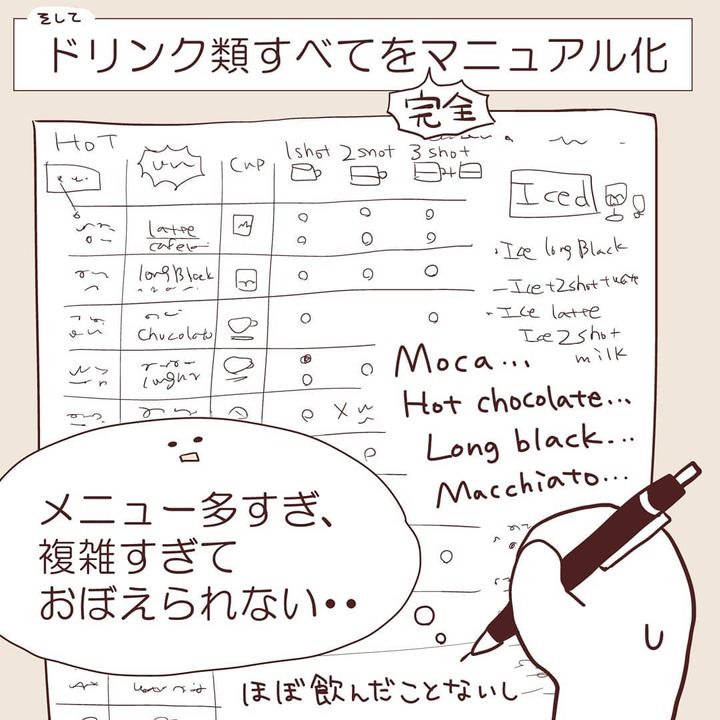 そして
ドリンク類すべてをマニュアル化
完全
HOT
Cup
1shot 2shot 3shot
Iced
latte
longBlack
Chocolate
・Ice long Black
Ice+2shot+
・Ice latte
Ice 2shot
milk
Moca...
Hot chocolate...
Long black...
Macchiato...
メニュー多すぎ、
複雑すぎて
おぼえられない・・
ほぼ飲んだことないし